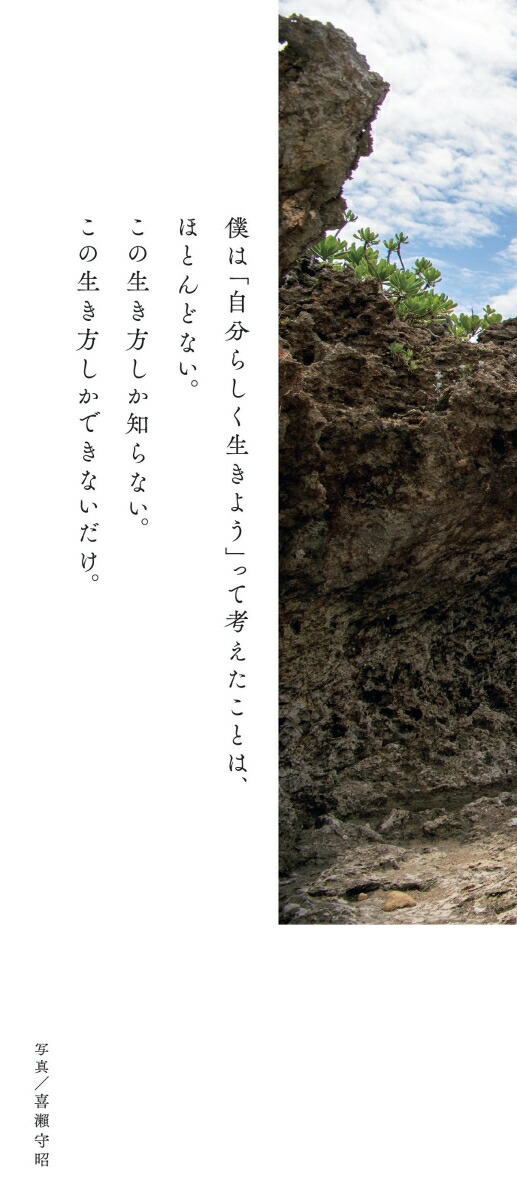 僕は「自分らしく生きよう」って考えたことは、
ほとんどない。
この生き方しか知らない。
この生き方しかできないだけ。
写真／喜瀨守昭